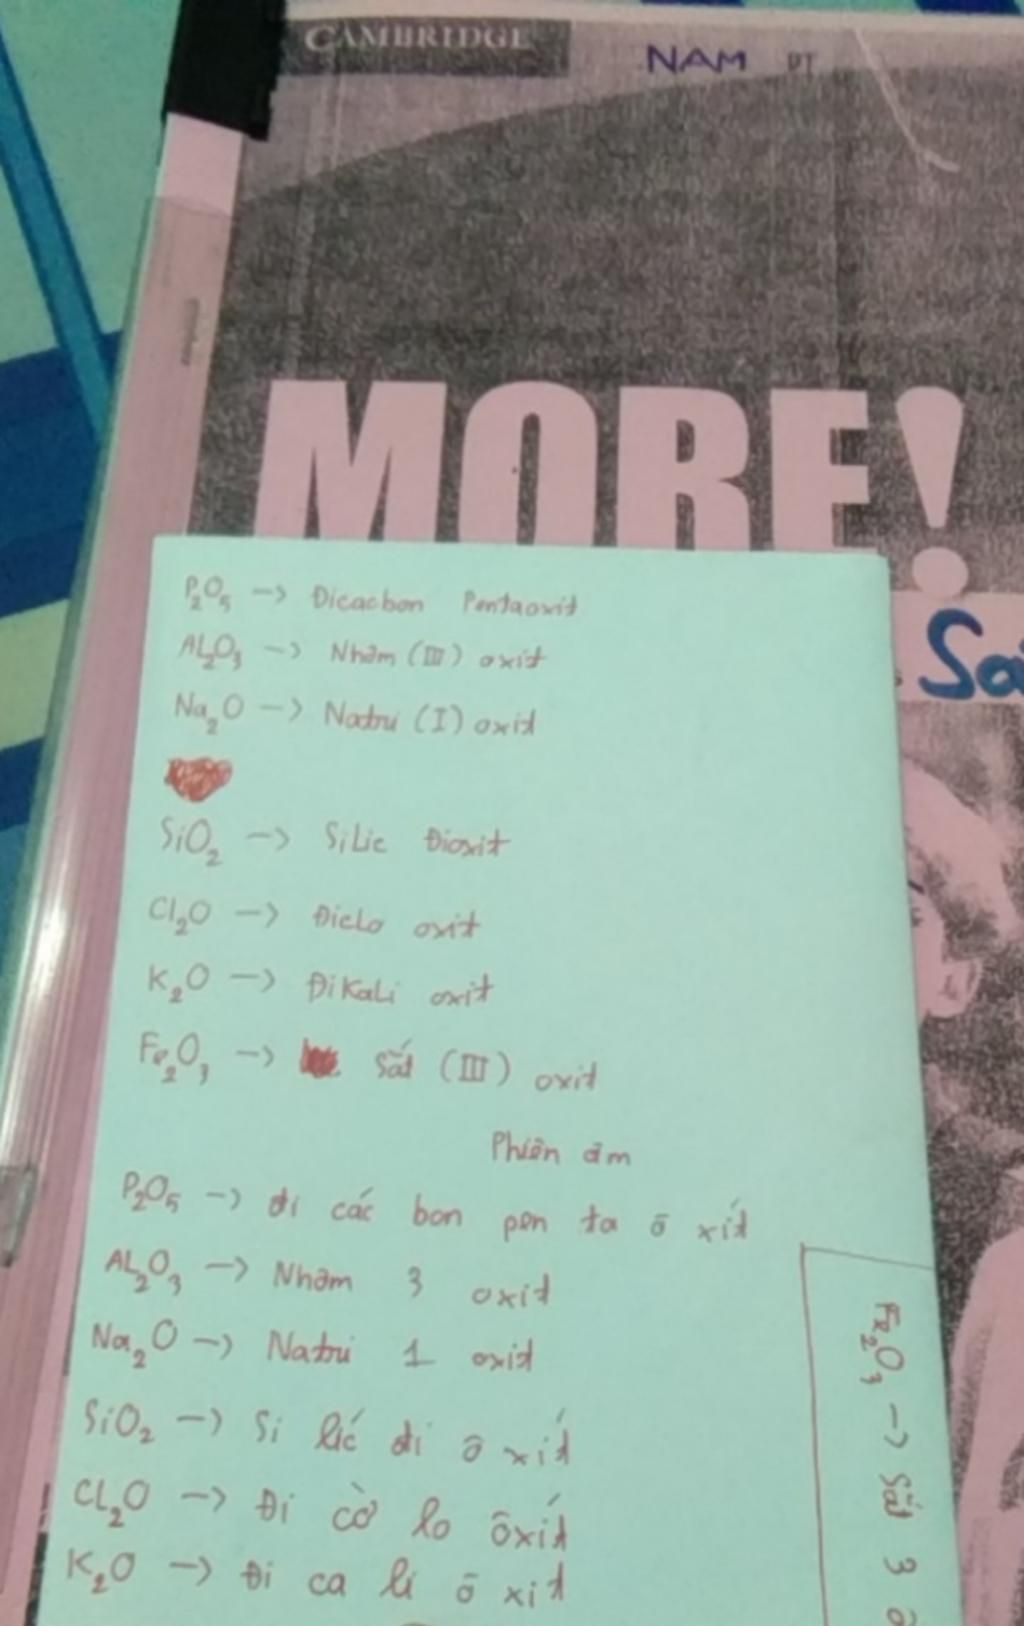 CAMBRIDGE
NAM DT
MORE!
Sá
P₂O₅ → Đicacbon Pentaoxit
AL₂O₃ → Nhôm (III) oxit
Na₂O → Natri (I) oxit
SiO₂ → SiLic Đioxit
Cl₂O → ĐicLo oxit
K₂O → ĐiKaLi oxit
Fe₂O₃ → Sắt (III) oxit
Phiên âm
P₂O₅ → đi các bon pen ta ô xít
AL₂O₃ → Nhôm 3 oxit
Na₂O → Natri 1 oxit
SiO₂ → Si líc đi ô xít
CL₂O → Đi cờ lo ôxít
K₂O → Đi ca li ô xit
Fe₂O₃ → Sắt 3 ô